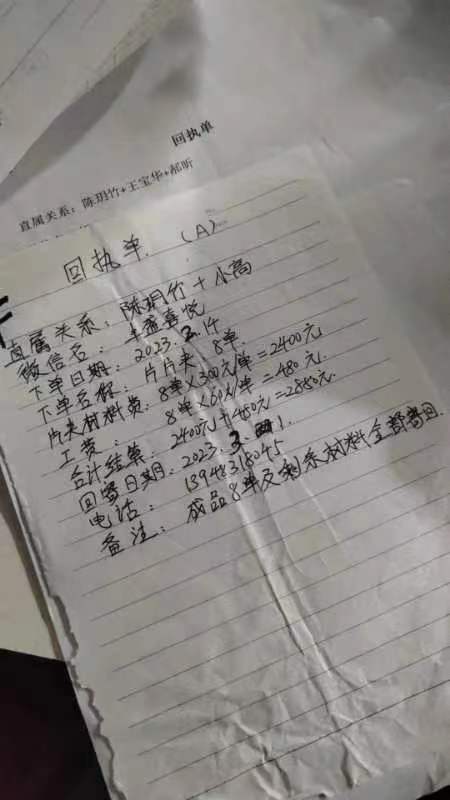 回执单
直属关系：陈玥竹+王宝华+郝昕
回执单 (A)
直属关系：陈玥竹+小高
微信名：丰盈喜悦
下单日期：2023.2.14
下单名称：片片夹 8单
片夹材料费：8单×300元/单=2400元
工费：8单×60元/单=480元.
合计结算：2400元+480元=2880元.
回寄日期：2023.3.
电话：13948318045
备注：成品8单及剩余材料全部寄回.